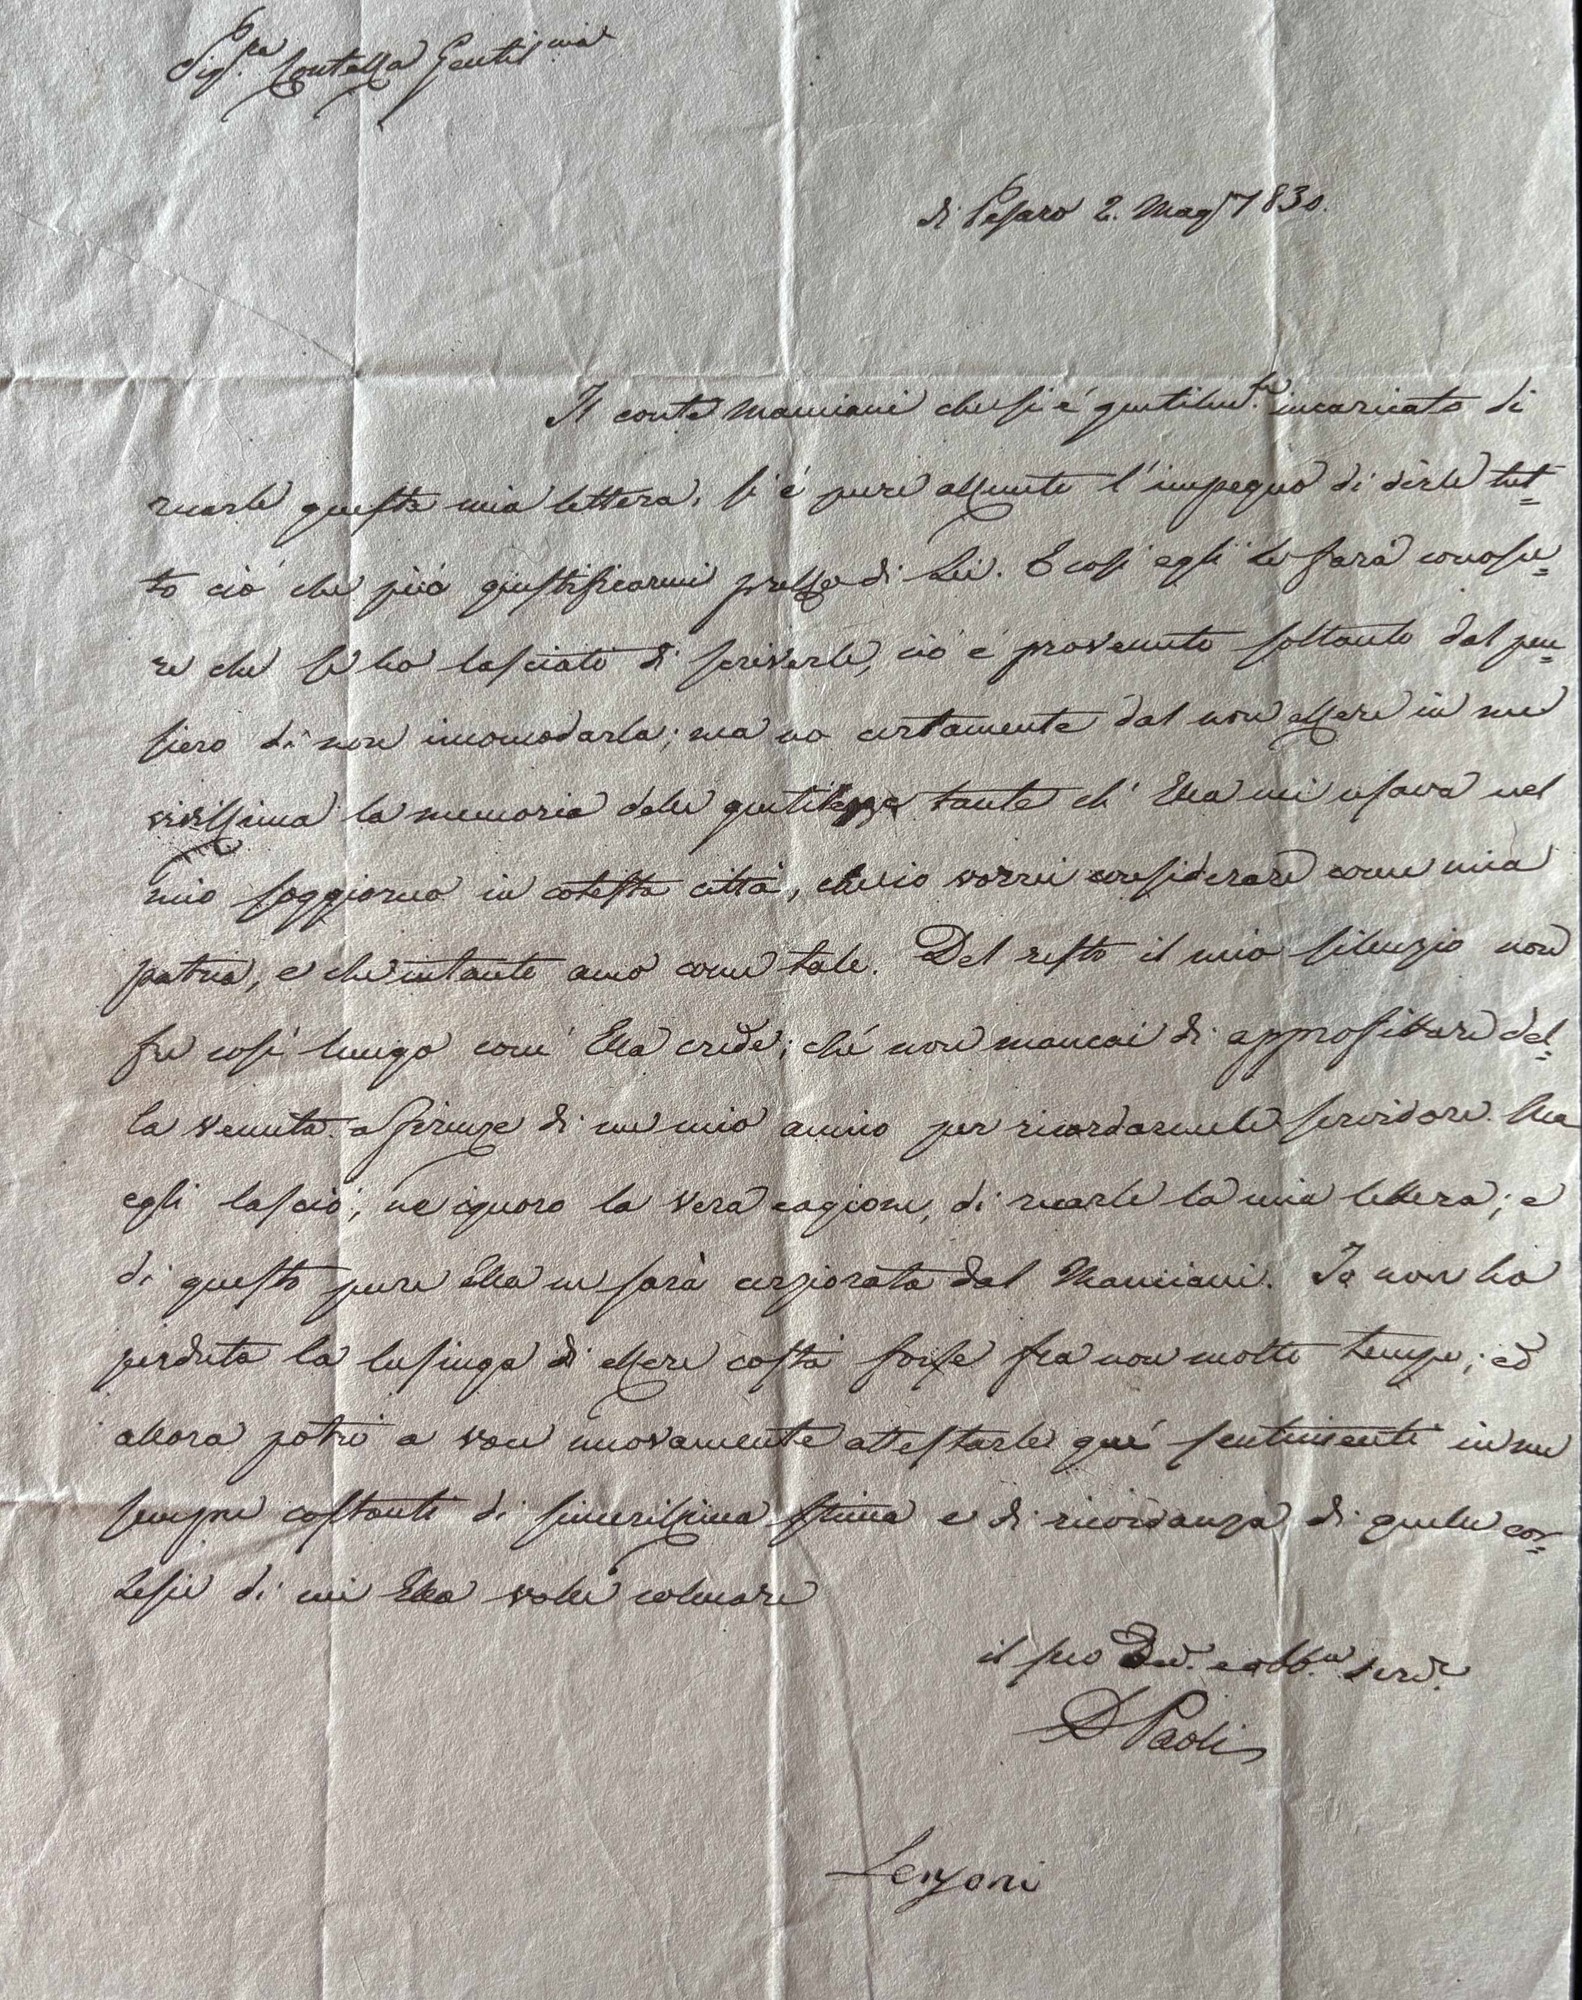 Sig.ra Contessa Gentil.ma
di Pesaro 2. Mag. 1830.
Il conte Mamiani che si è gentilm.te incaricato di
recarle questa mia lettera, si è pure assunto l'impegno di dirle tut=
to ciò che può giustificarmi presso di Lei. E così egli Le farà conosce=
re che se ho lasciato di scriverle, ciò è provenuto soltanto dal pen=
siero di non incomodarla; ma no certamente dal non essere in me
vivissima la memoria delle gentilezze tante ch' Ella mi usava nel
mio soggiorno in cotesta città, che io vorrei considerare come mia
patria, e che intanto amo come tale. Del resto il mio silenzio non
fu così lungo com' Ella crede; ché non mancai di approfittare del=
la venuta a Firenze di un mio amico per ricordarmele servidore. Ma
egli lasciò, ne ignoro la vera cagione, di recarle la mia lettera; e
di questo pure Ella ne sarà cerziorata dal Mamiani. Io non ho
perduta la lusinga di essere costà forse fra non molto tempo; ed
allora potrò a voce nuovamente attestarle que' sentimenti in me
sempre costanti di sincerissima stima e di ricordanza di quelle cor=
tesie di cui Ella volle colmare
il suo Dev. e obb.mo serv.e
D Paoli
Lenzoni